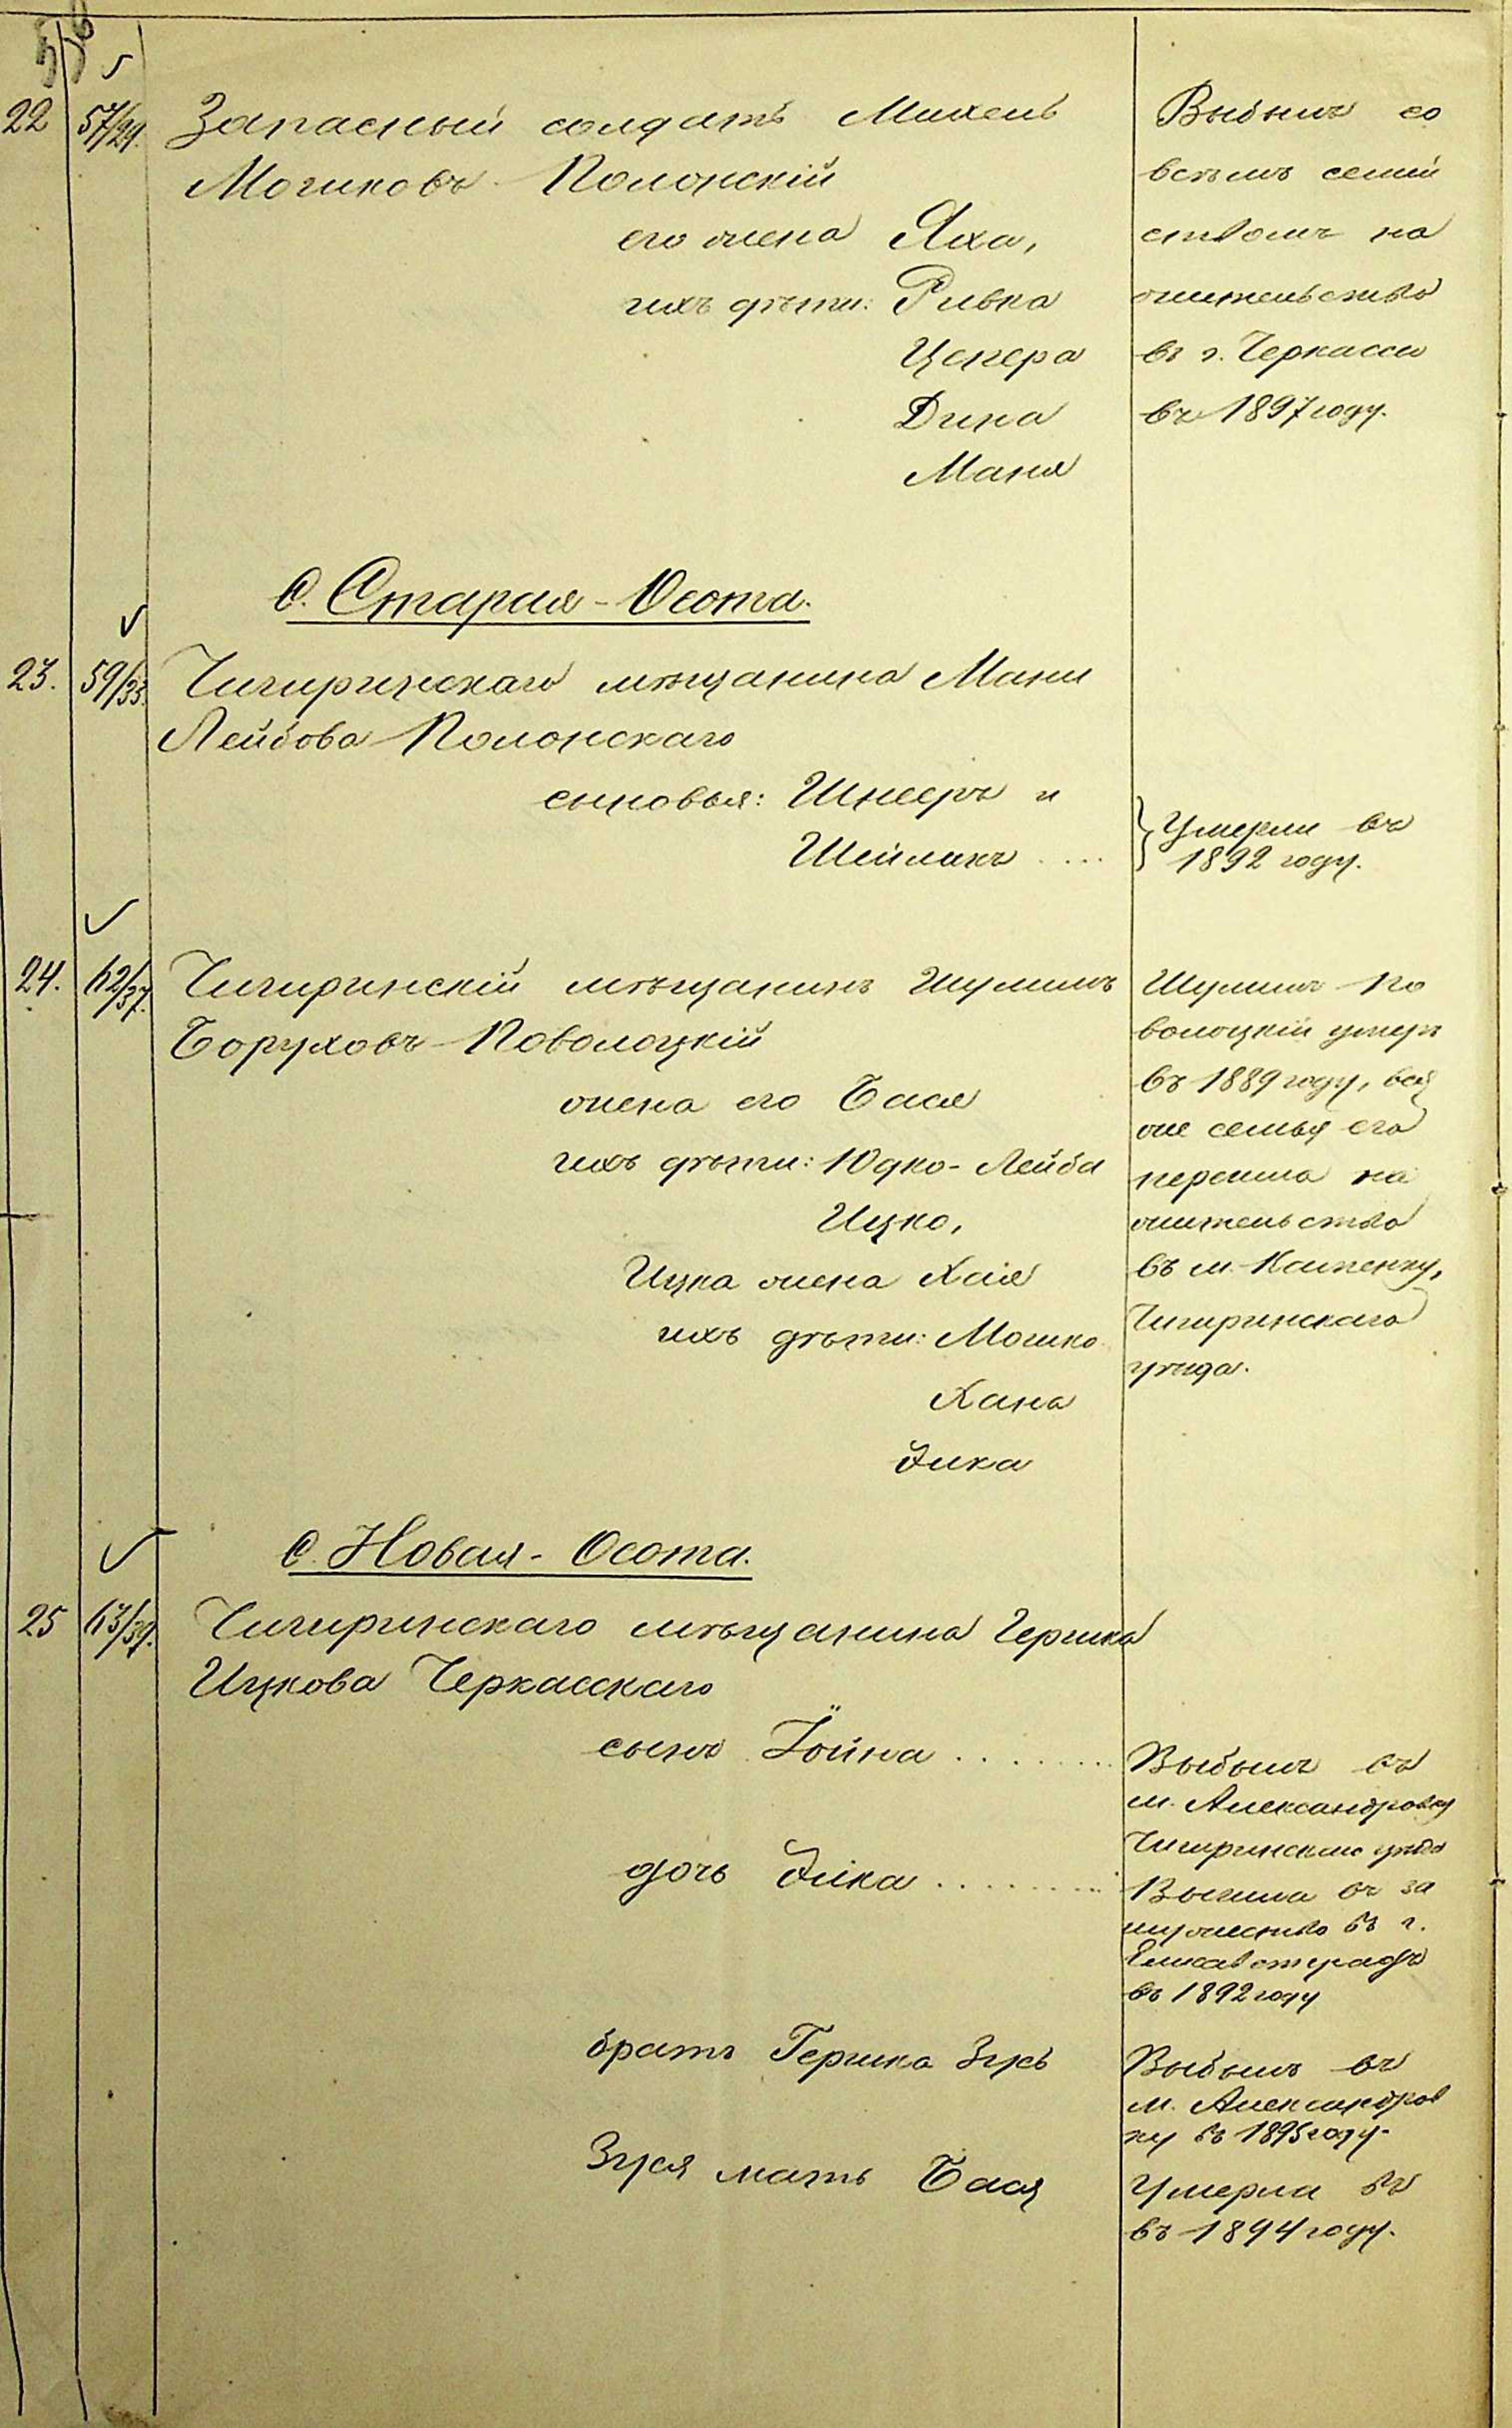 22 57/29. Запасный солдатъ Михель
Мошковъ Полонскій
его жена Яха,
ихъ дѣти: Ривка
Ципера
Дина
Маня
Выбылъ со
всѣмъ семей
ствомъ на
жительство
въ г. Черкассы
въ 1897 году.
С. Старая-Осота.
23. 59/33. Чигиринскаго мѣщанина Мани
Лейбова Полонскаго
сыновья: Шнееръ и
Шейлихъ ....
Умерли въ
1892 году.
24. 62/37. Чигиринскій мѣщанинъ Шулимъ
Боруховъ Поволоцкій
жена его Бася
ихъ дѣти: Юдко-Лейба
Ицко,
Ицка жена Хая
ихъ дѣти: Мошко
Хана
Эйка
Шулимъ По
волоцкій умеръ
въ 1889 году, вся
же семья его
перешла на
жительство
въ м. Каменку,
Чигиринскаго
уѣзда.
С. Новая-Осота.
25 63/39. Чигиринскаго мѣщанина Гершка
Ицкова Черкасскаго
сынъ Іойна .......
Выбылъ въ
м. Александровку
Чигиринскаго уѣзда
дочь Эйка .......
Вышла въ за
мужество въ г.
Елисаветградъ
въ 1892 году
братъ Гершка Зусь
Выбылъ въ
м. Александров
ку въ 1895 году.
Зуся мать Бася
Умерла въ
въ 1894 году.